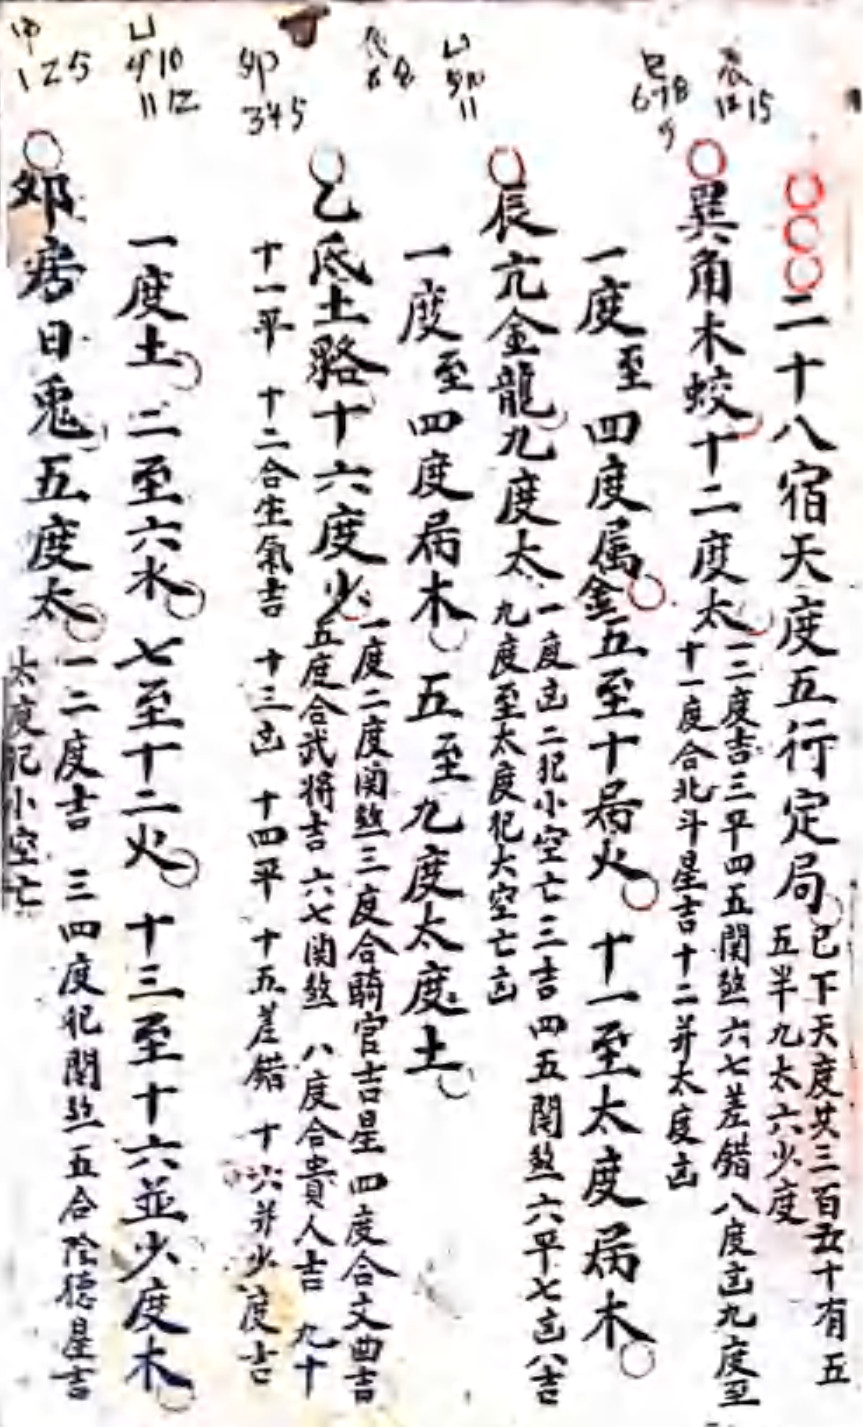 二十八宿天度五行定局
已下天度共三百五十有五
五半九太六少度
巽角木蛟十二度太
一二度吉三平四五関煞六七差错八度凶九度至
十一度合北斗星吉十二并太度凶
一度至四度属金五至十局火十一至太度局木
辰亢金龍九度太
一度凶二犯小空亡三吉四五関煞六平七凶八吉
九度至太度犯大空亡凶
一度至四度局木五至九度太度土
乙氐土貉十六度少
一度二度関煞三度合騎官吉星四度合文曲吉
五度合武將吉六七関煞八度合貴人吉九十
十一平十二合生氣吉十三凶十四平十五差错十六并少度吉
一度土二至六水七至十二火十三至十六並少度木
卯房日兎五度太
一二度吉三四度犯関煞五合陰德星吉
太度犯小空亡
辰
12 15
巳
678
9
910
11
卯
345
910
11 12
125